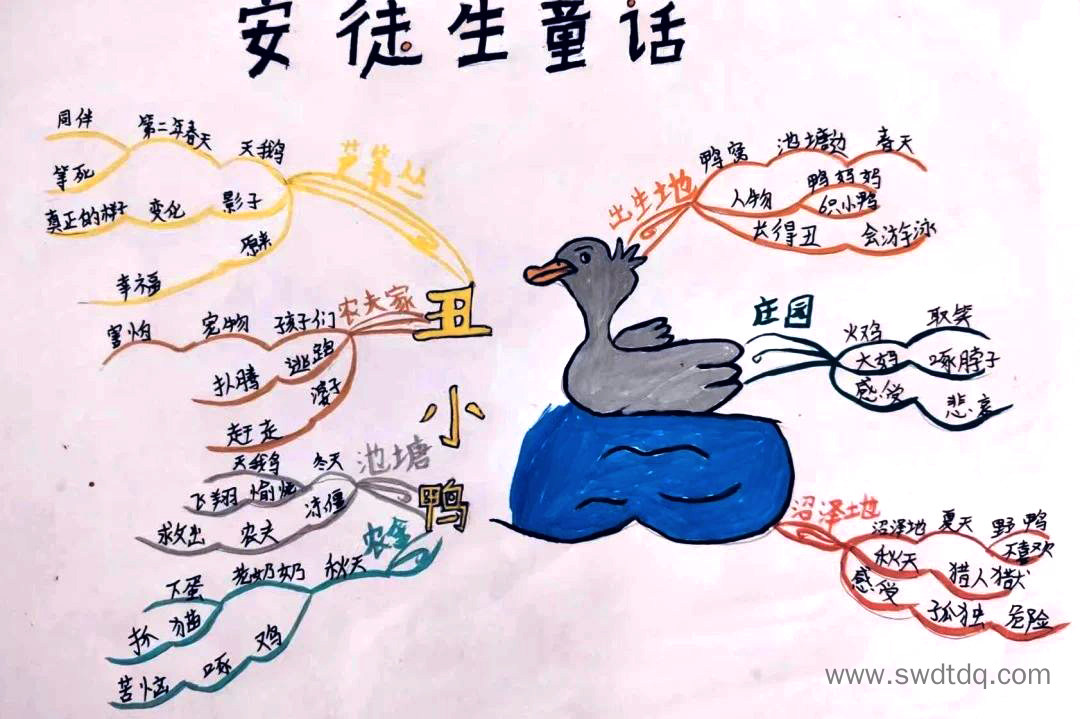 安徒生童话
丑小鸭
出生土地
鸭窝 池塘边 春天
人物 鸭妈妈
6只小鸭
长得丑 会游泳
庄园
火鸡 取笑
大妈 啄脖子
感受 悲哀
沼泽土地
沼泽地 夏天 野鸭
不喜欢
秋天 猎人 猎犬
感受 孤独 危险
农舍
秋天 老奶奶 下蛋
猫 抓
鸡 啄
苦恼
池塘
冬天 天鹅
愉悦 飞翔
冻僵 农夫 救出
农夫家
孩子们 宠物 害怕
逃路 扒腾
凳子 赶走
芦苇丛
天鹅 第二年春天 同伴
等死
影子 变化 真正的样子
原来 幸福
www.swdtdq.com